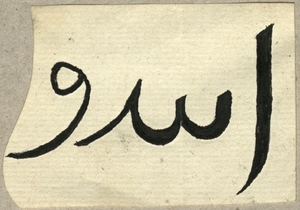 اسدو